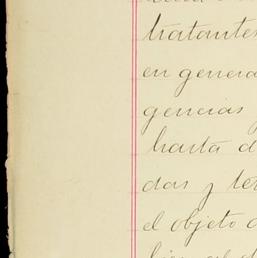 tratantes
en genera
gencias
hasta d
das y ter
el objeto d